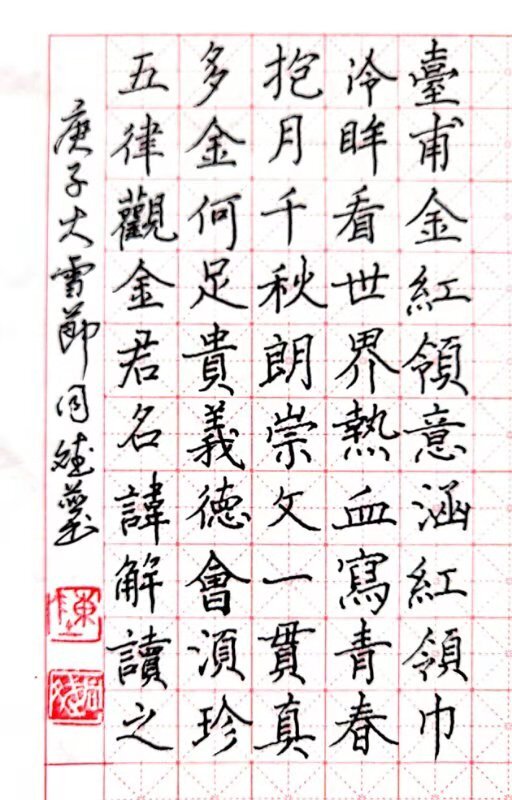 臺甫金紅領意涵紅領巾
冷眸看世界熱血寫青春
抱月千秋朗崇文一貫真
多金何足貴義德會須珍
五律觀金君名諱解讀之
庚子大雪節同